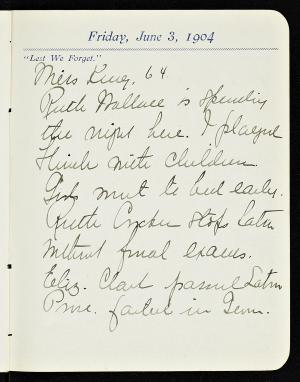 Friday, June 3, 1904
"Lest We Forget."
Miss King, 64.
Ruth Wallace is spending
the night here. I played
Flinch with children.
Girls went to bed early.
Ruth stops Latin
without final exams.
Eliz. Clark passed Latin
Prose. failed in Germ.